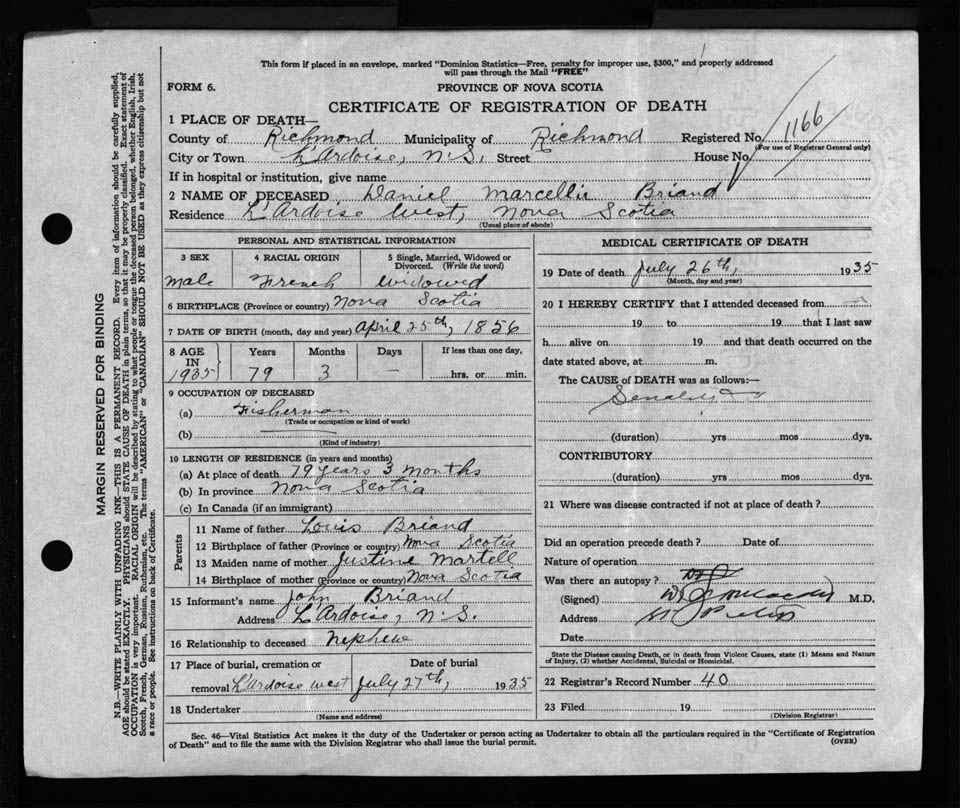 This form if placed in an envelope, marked "Dominion Statistics—Free, penalty for improper use, $300," and properly addressed
will pass through the Mail "FREE"
FORM 6.
PROVINCE OF NOVA SCOTIA
CERTIFICATE OF REGISTRATION OF DEATH
1 PLACE OF DEATH—
County of Richmond Municipality of Richmond Registered No. 1166
(For use of Registrar General only)
City or Town L'Ardoise, N.S. Street House No.
If in hospital or institution, give name
2 NAME OF DECEASED Daniel Marcellin Briand
Residence L'Ardoise West, Nova Scotia
(Usual place of abode)
PERSONAL AND STATISTICAL INFORMATION
3 SEX 4 RACIAL ORIGIN 5 Single, Married, Widowed or
Divorced. (Write the word)
Male French Widowed
6 BIRTHPLACE (Province or country) Nova Scotia
7 DATE OF BIRTH (month, day and year) April 25th, 1856
8 AGE Years Months Days If less than one day,
IN
1935 79 3 — hrs. or min.
9 OCCUPATION OF DECEASED
(a) Fisherman
(Trade or occupation or kind of work)
(b)
(Kind of industry)
10 LENGTH OF RESIDENCE (in years and months)
(a) At place of death 79 years 3 months
(b) In province Nova Scotia
(c) In Canada (if an immigrant)
Parents
11 Name of father Louis Briand
12 Birthplace of father (Province or country) Nova Scotia
13 Maiden name of mother Justine Martell
14 Birthplace of mother (Province or country) Nova Scotia
15 Informant's name John Briand
Address L'Ardoise, N.S.
16 Relationship to deceased Nephew
17 Place of burial, cremation or Date of burial
removal L'Ardoise West July 27th, 1935
18 Undertaker
(Name and address)
MEDICAL CERTIFICATE OF DEATH
19 Date of death July 26th, 1935
(Month, day and year)
20 I HEREBY CERTIFY that I attended deceased from
19 to 19 that I last saw
h alive on 19 and that death occurred on the
date stated above, at m.
The CAUSE of DEATH was as follows:—
(duration) yrs mos dys.
CONTRIBUTORY
(duration) yrs mos dys.
21 Where was disease contracted if not at place of death?
Did an operation precede death? Date of
Nature of operation
Was there an autopsy?
(Signed) M.D.
Address
Date
State the Disease causing Death, or in death from Violent Causes, state (1) Means and Nature
of Injury, (2) whether Accidental, Suicidal or Homicidal.
22 Registrar's Record Number 40
23 Filed 19
(Division Registrar)
Sec. 46—Vital Statistics Act makes it the duty of the Undertaker or person acting as Undertaker to obtain all the particulars required in the "Certificate of Registration
of Death" and to file the same with the Division Registrar who shall issue the burial permit. (OVER)
MARGIN RESERVED FOR BINDING
N.B.—WRITE PLAINLY WITH UNFADING INK—THIS IS A PERMANENT RECORD. Every item of information should be carefully supplied,
AGE should be stated EXACTLY. PHYSICIANS should STATE CAUSE OF DEATH in plain terms, so that it may be properly classified. Exact statement of
OCCUPATION is very important. RACIAL ORIGIN will be described by stating to what people or tongue the deceased person belonged, whether English, Irish,
Scotch, French, German, Russian, Ruthenian, etc. The terms "AMERICAN" or "CANADIAN" SHOULD NOT BE USED as they express citizenship but not
a race or people. See instructions on back of Certificate.